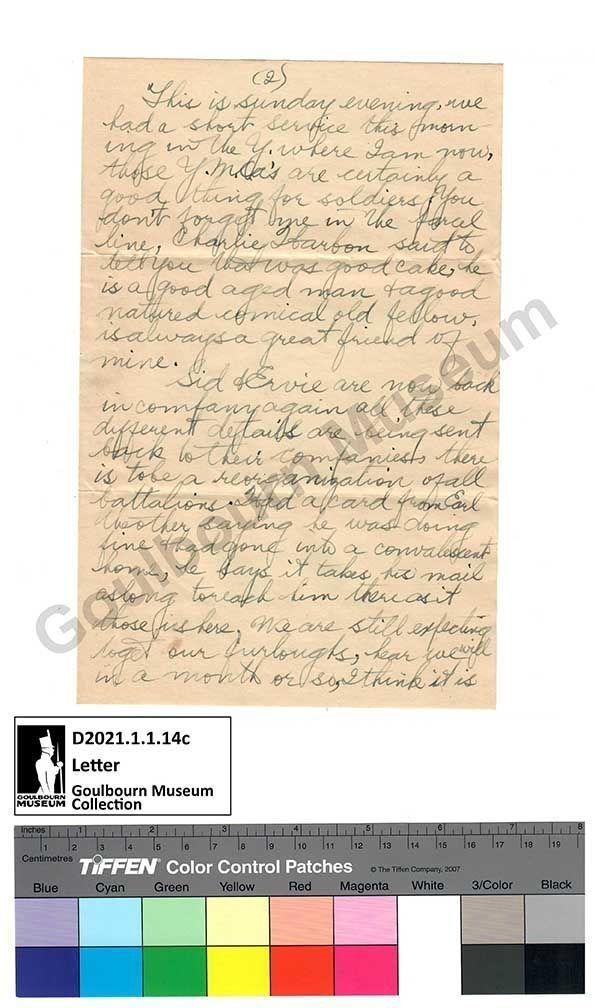 (2)
This is sunday evening, we
had a short service this morn-
ing in the Y. where I am now,
those Y.M.C.A's are certainly a
good thing for soldiers. You
don't forget me in the parcel
line, Charlie said to
tell you that was good cake, he
is a good aged man & a good
natured comical old fellow,
is always a great friend of
mine.
Sid & Ervie are now back
in company again all these
different details are being sent
back to their companies there
is to be a reorganization of all
battalions. Had a card from Earl
saying he was doing
fine & had gone into a convalescent
home, he says it takes his mail
as long to reach him there as it
those us here, We are still expecting
to get our furloughs, hear we will
in a month or so, I think it is
Goulbourn Museum
D2021.1.1.14c
Letter
Goulbourn Museum
Collection
GOULBOURN
MUSEUM
Inches 1 2 3 4 5 6 7 8
Centimetres 1 2 3 4 5 6 7 8 9 10 11 12 13 14 15 16 17 18 19
TIFFEN Color Control Patches © The Tiffen Company, 2007
Blue Cyan Green Yellow Red Magenta White 3/Color Black